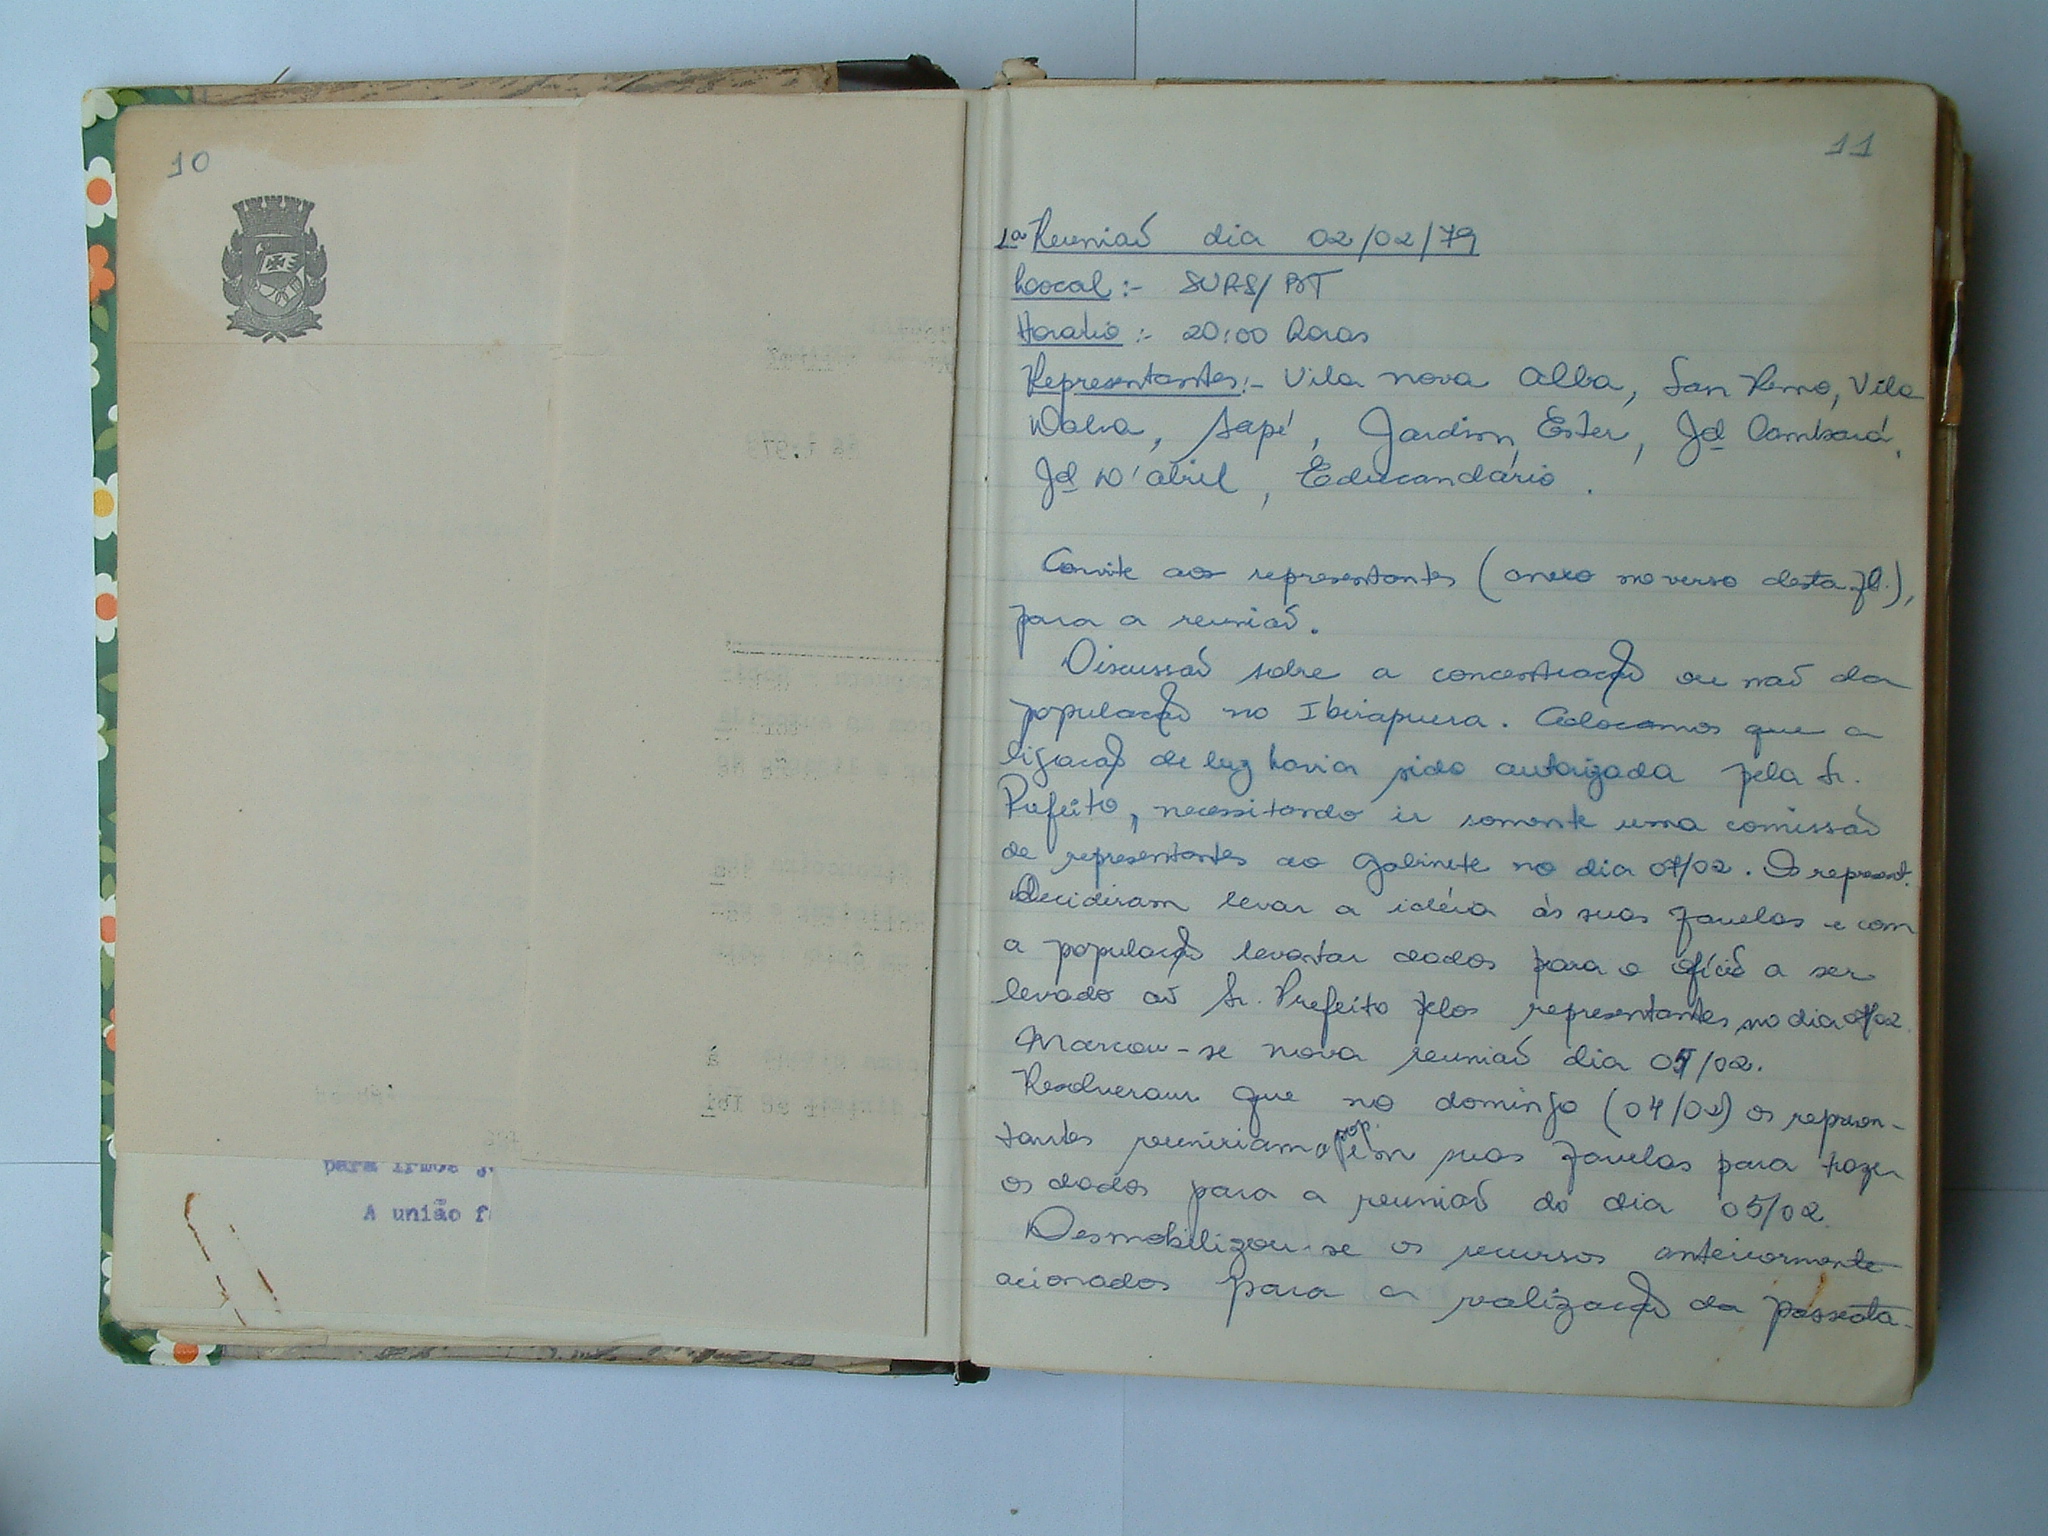 10
para irmos j
A união f
11
1ª Reunião dia 02/02/79
Local :- SURS/BT
Horario :- 20:00 horas
Representantes :- Vila nova Alba, San Remo, Vila
Dalva, Sapé, Jardim Ester, Jd Cambará,
Jd D'abril, Educandário.
Convite aos representantes (anexo no verso desta fl.),
para a reunião.
Discussão sobre a concentração ou não da
população no Ibirapuera. Colocamos que a
ligação de luz havia sido autorizada pela Sr.
Prefeito, necessitando ir somente uma comissão
de representantes ao gabinete no dia 07/02. Os represent.
Decidiram levar a idéia às suas favelas e com
a população levantar dados para o ofício a ser
levado ao Sr. Prefeito pelos representantes no dia 07/02.
Marcou-se nova reunião dia 05/02.
Resolveram que no domingo (04/02) os represen-
tantes reuniriam a pop. em suas favelas para trazer
os dados para a reunião do dia 05/02.
Desmobilizou-se os recursos anteriormente
acionados para a realização da passeata.